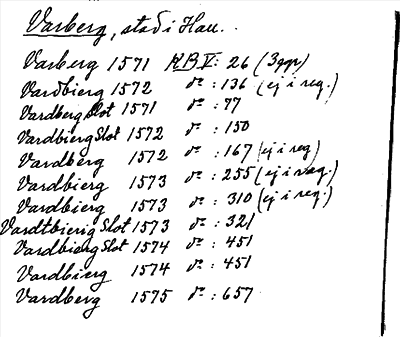 Varberg, stad i Hall.
Varberg 1571 KBV: 26 (3ggr)
Vardbierg 1572 do: 136 (ej i reg.)
Vardberg Slot 1571 do: 77
Vardbierg Slot 1572 do: 150
Vardberg 1572 do: 167 (ej i reg)
Vardbierg 1573 do: 255 (ej i reg.)
Vardbierg 1573 do: 310 (ej i reg.)
Vardtbierig Slot 1573 do: 321
Vardbierg Slot 1574 do: 451
Vardbierg 1574 do: 451
Vardberg 1575 do: 657